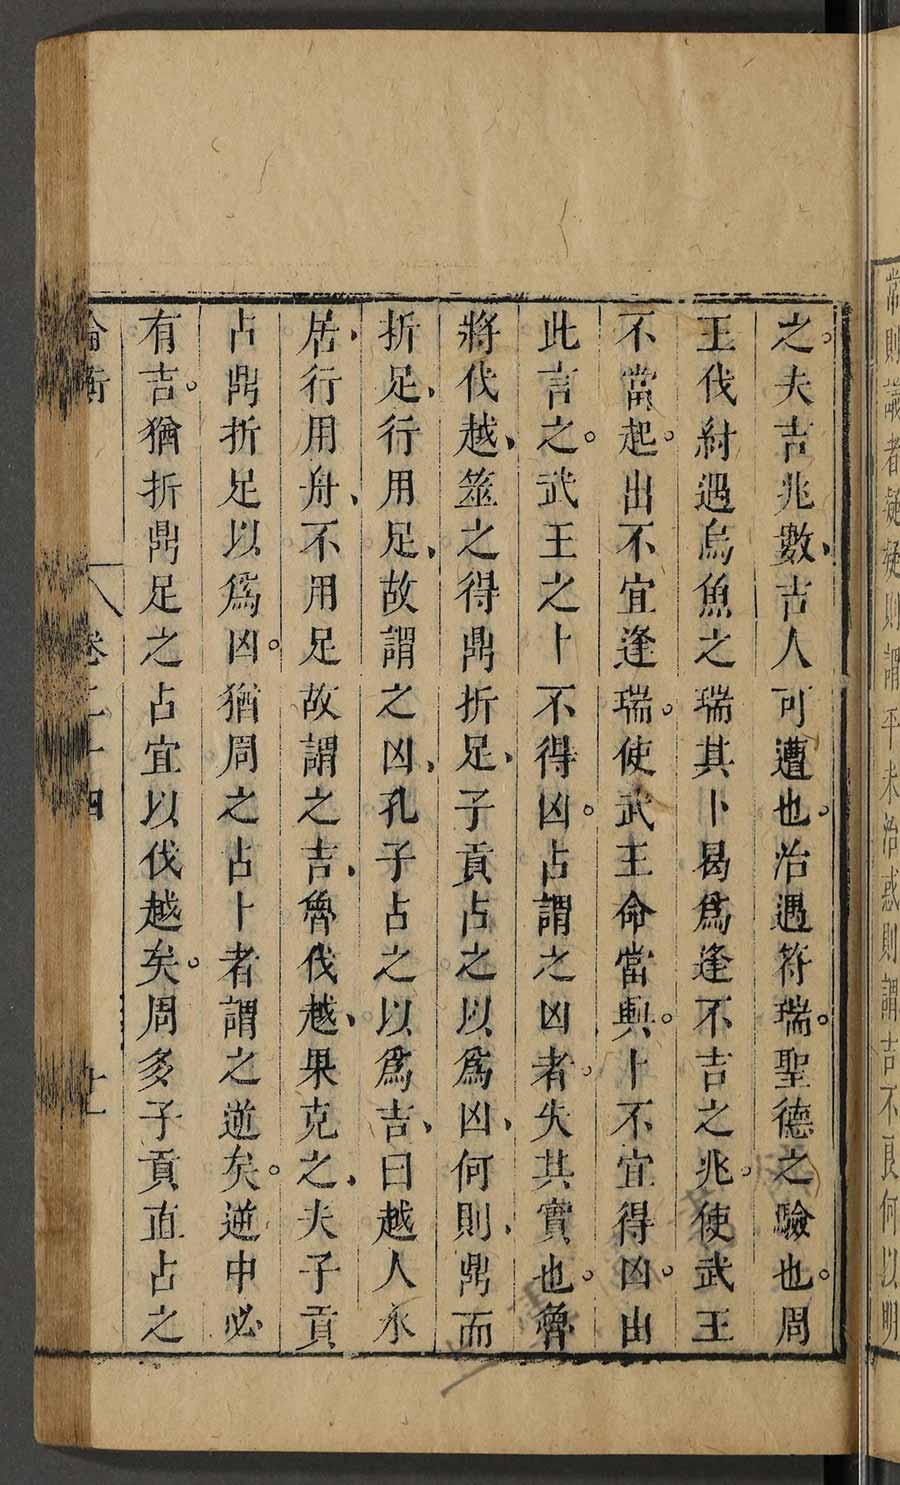 常則議者疑疑則謂平未治惑則謂吉不良何以明
之。夫吉兆數、吉人可遭也。治遇符瑞。聖德之驗也。周
王伐紂遇烏魚之瑞其卜曷爲逢不吉之兆。使武王
不當起。出不宜逢瑞。使武王命當興。卜不宜得凶。由
此言之。武王之卜不得凶。占謂之凶者。失其實也。魯
將伐越、筮之得鼎折足、子貢占之以爲凶、何則、鼎而
折足、行用足、故謂之凶、孔子占之以爲吉、曰越人水
居、行用舟、不用足故謂之吉、魯伐越、果克之、夫子貢
占鼎折足以爲凶。猶周之占卜者謂之逆矣。逆中必
有吉。猶折鼎足之占宜以伐越矣。周多子貢直占之
論衡 卷二十四